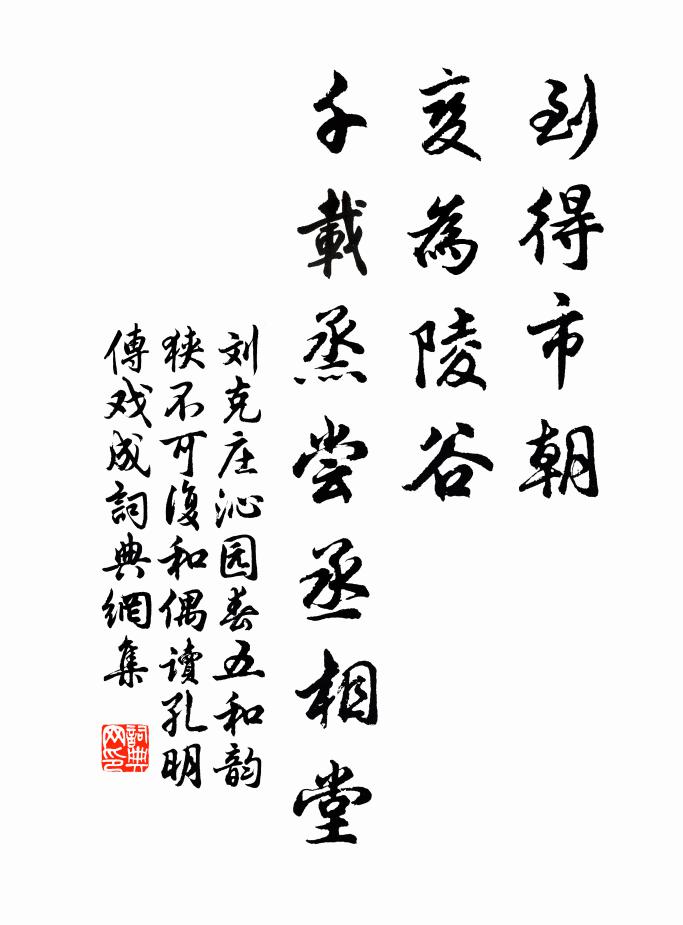 到得市朝
变為陵谷
千載烝尝丞相堂
刘克庄沁园春五和韵
狭不可復和偶讀孔明
傳戏成詞典網集
詞典
网印